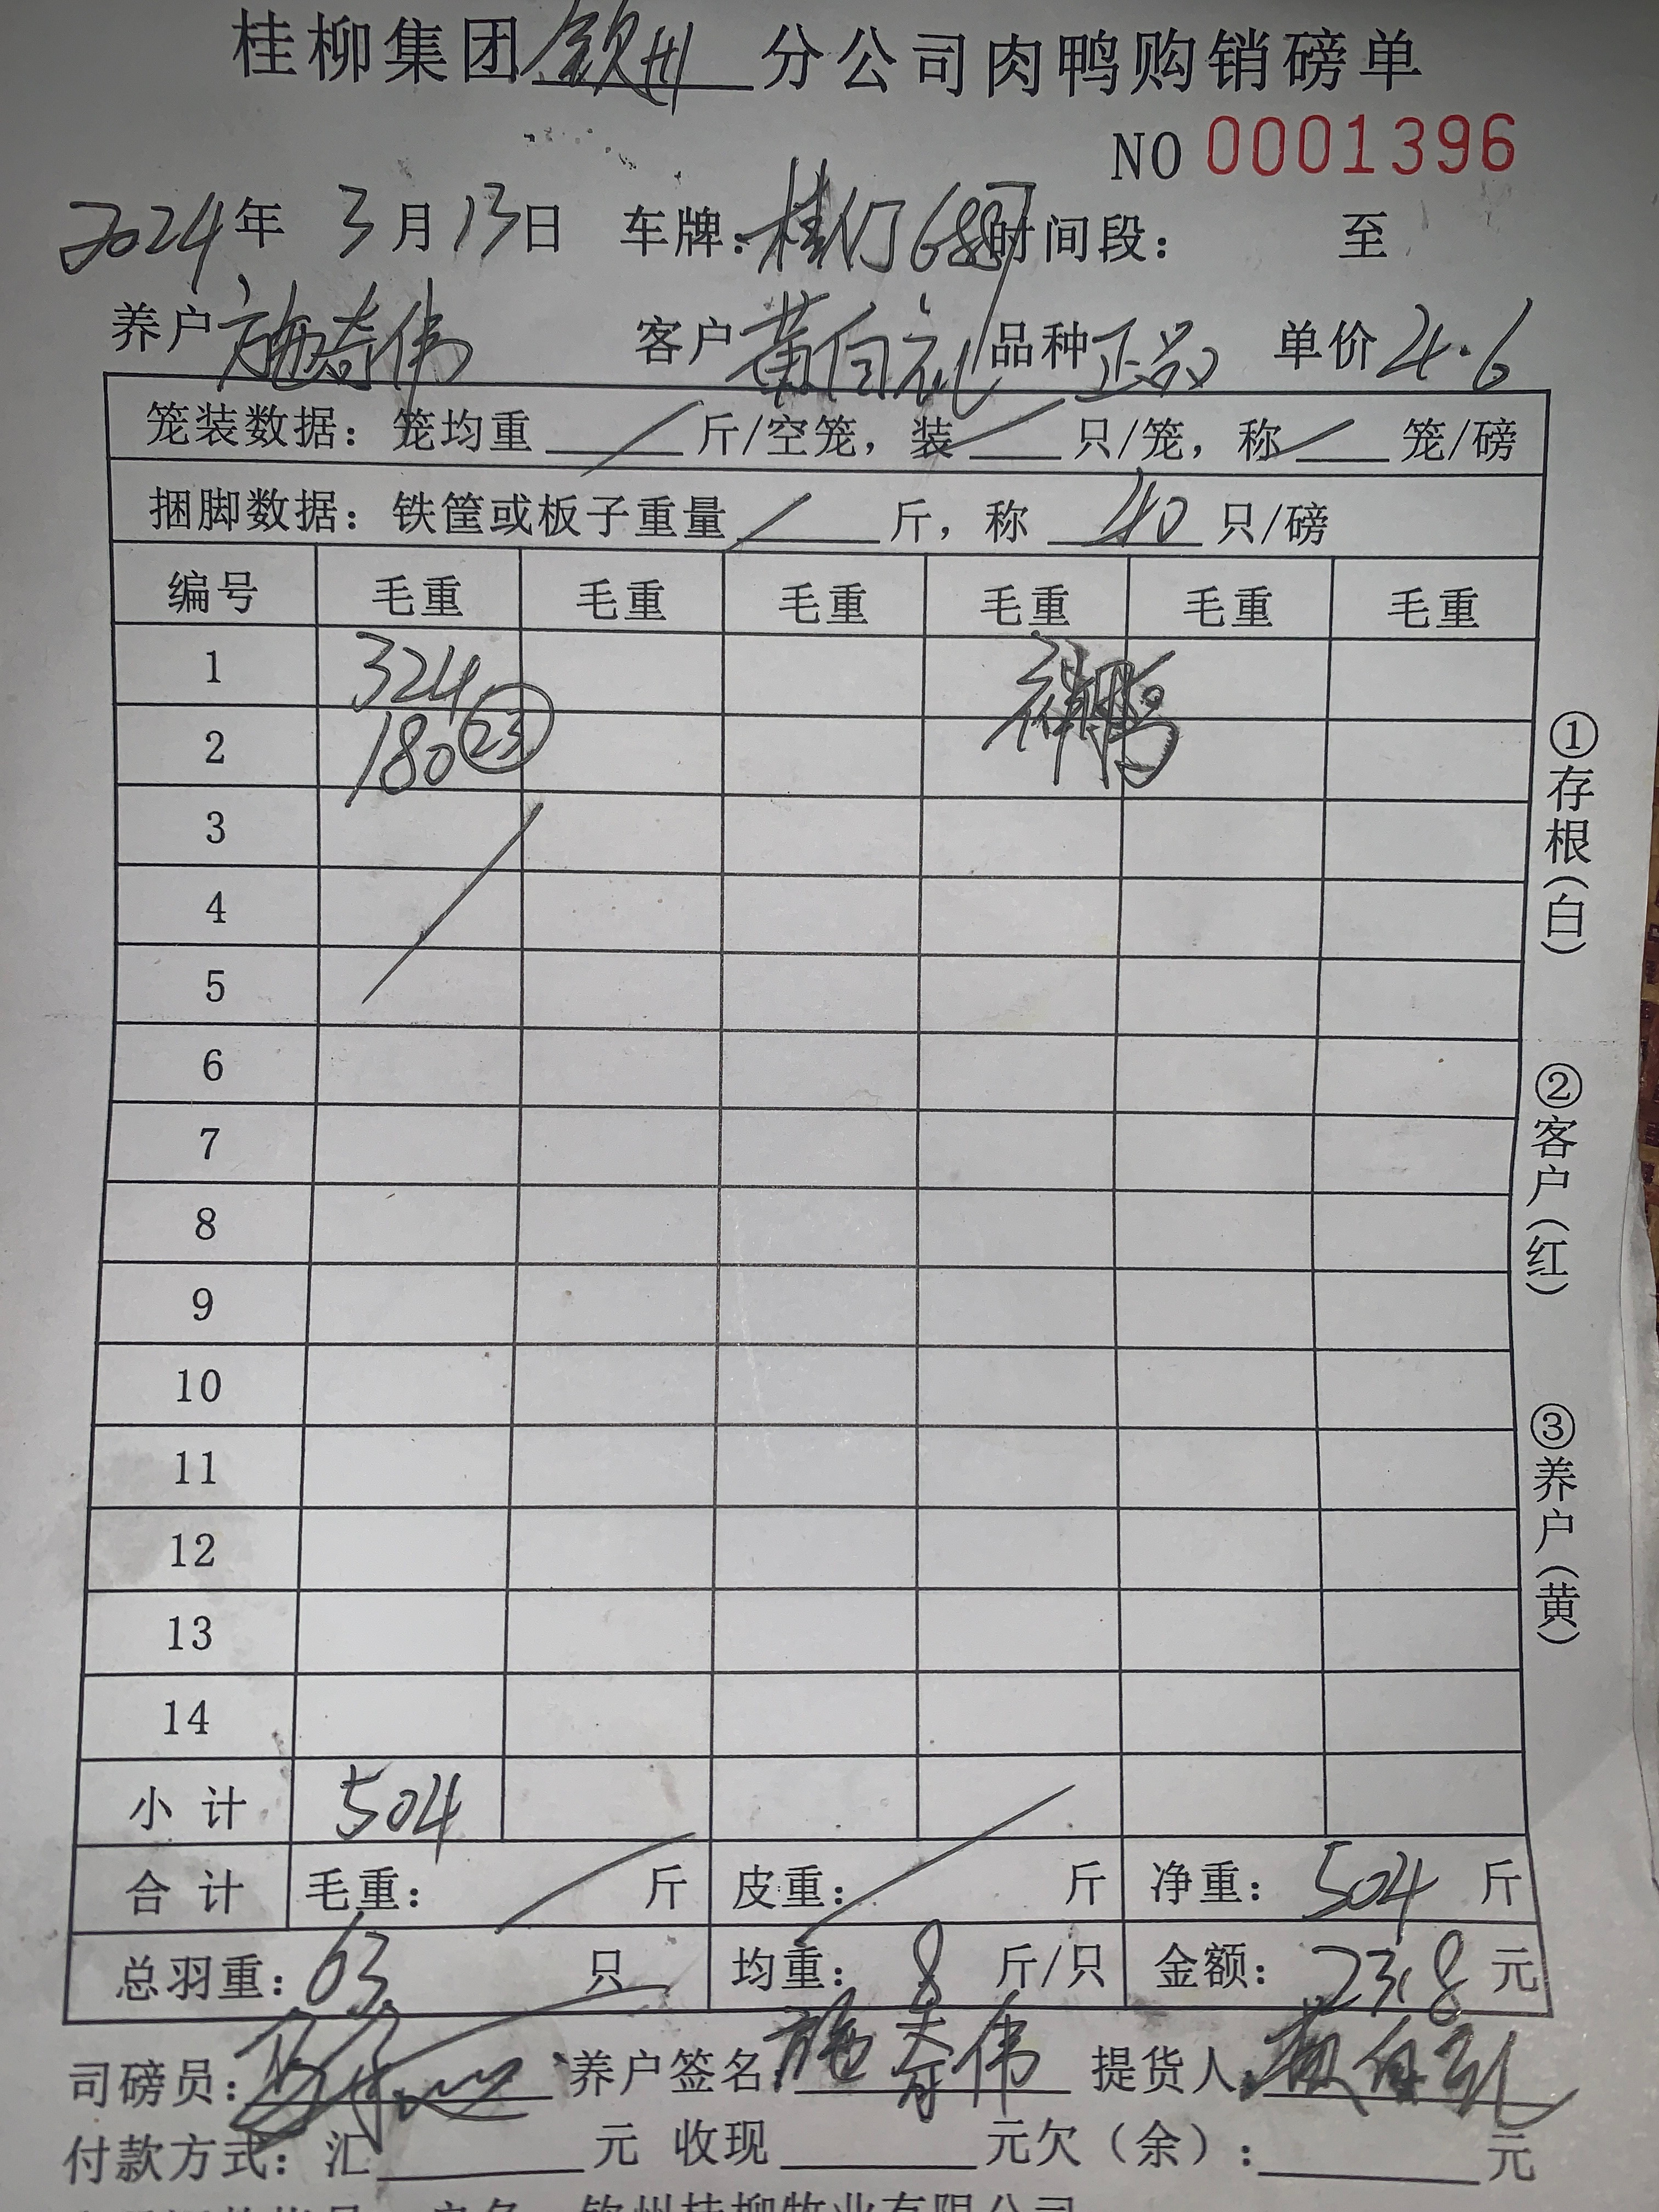 桂柳集团钦州分公司肉鸭购销磅单
NO 0001396
2024年 3月13日 车牌: 时间段: 至
养户 施奇伟 客户 黄自礼 品种 正品 单价 4.6
笼装数据: 笼均重 / 斤/空笼, 装 / 只/笼, 称 / 笼/磅
捆脚数据: 铁筐或板子重量 / 斤, 称 40 只/磅
编号 毛重 毛重 毛重 毛重 毛重 毛重
1 324
2 180 (23)
3
4
5
6
7
8
9
10
11
12
13
14
小计 504
合计 毛重: / 斤 皮重: / 斤 净重: 504 斤
总羽重: 63 只 均重: 8 斤/只 金额: 2318 元
司磅员: 养户签名: 施奇伟 提货人: 黄自礼
付款方式: 汇 元 收现 元欠(余): 元
①存根(白)
②客户(红)
③养户(黄)